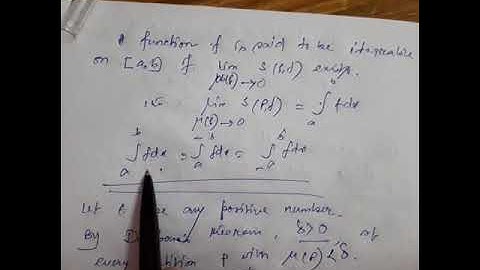 A function f is said to be integrable
on [a,b] if lim S(P,f) exists.
μ(P)→0
i.e. lim S(P,f) = ∫ₐᵇ fdx
μ(P)→0
∫ₐᵇ fdx = ∫ₐ⁻ᵇ fdx = ∫₋ₐᵇ fdx
Let be any positive number.
By theorem, δ>0,
every p with μ(P)<δ.